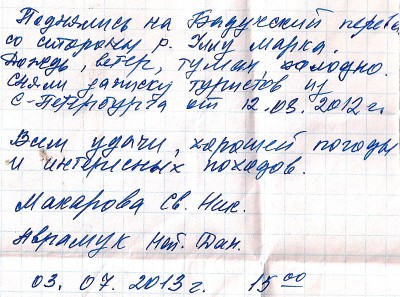 Поднялись на Бадукский перева
со стороны р. Уллу Марка.
Дождь, ветер, туман, холодно.
Сняли записку туристов из
С-Петербурга от 12.03.2012 г.
Всем удачи, хорошей погоды
и интересных походов.
Макарова Св. Ник.
Аврамук Нат. Дан.
03. 07. 2013 г. 15 00